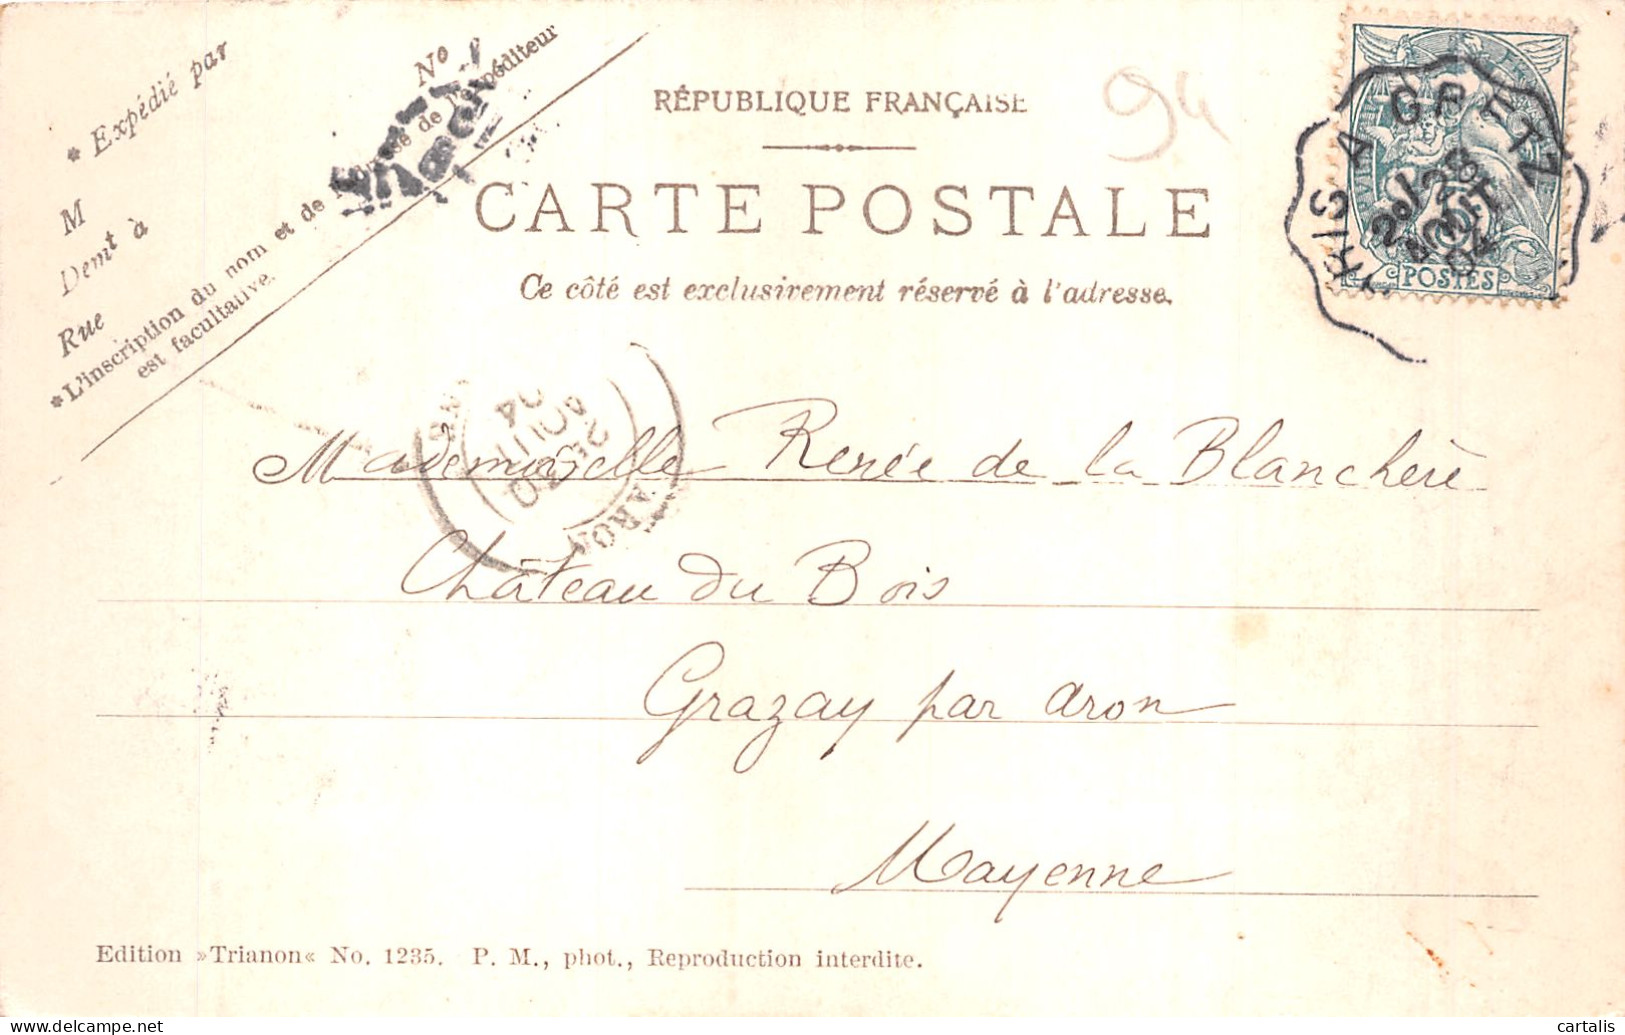 * Expédié par
M
Demt à
Rue
No
* L'inscription du nom et de l'adresse de l'expéditeur
est facultative.
RÉPUBLIQUE FRANÇAISE
94
CARTE POSTALE
Ce côté est exclusivement réservé à l'adresse.
A GRETZ
28
AOUT
04
POSTES
04
AOUT
ARON
Mademoiselle Renée de la Blanchère
Château du Bois
Grazay par Aron
Mayenne
Edition »Trianon« No. 1235. P. M., phot., Reproduction interdite.
cartalis
delcampe.net